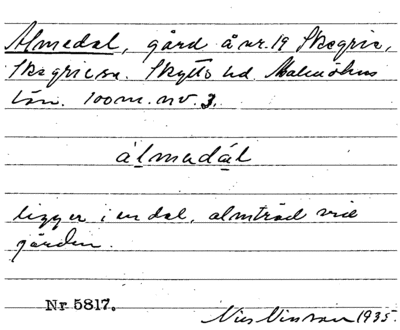 Almedal, gård å nr. 19 Skegrie,
Skegrie sn. Skytts hd. Malmöhus
län. 100 m. nv. 3.
álmedál
ligger i en dal, almträd vid
gården.
Nr 5817.
Nils Nilsson 1935.